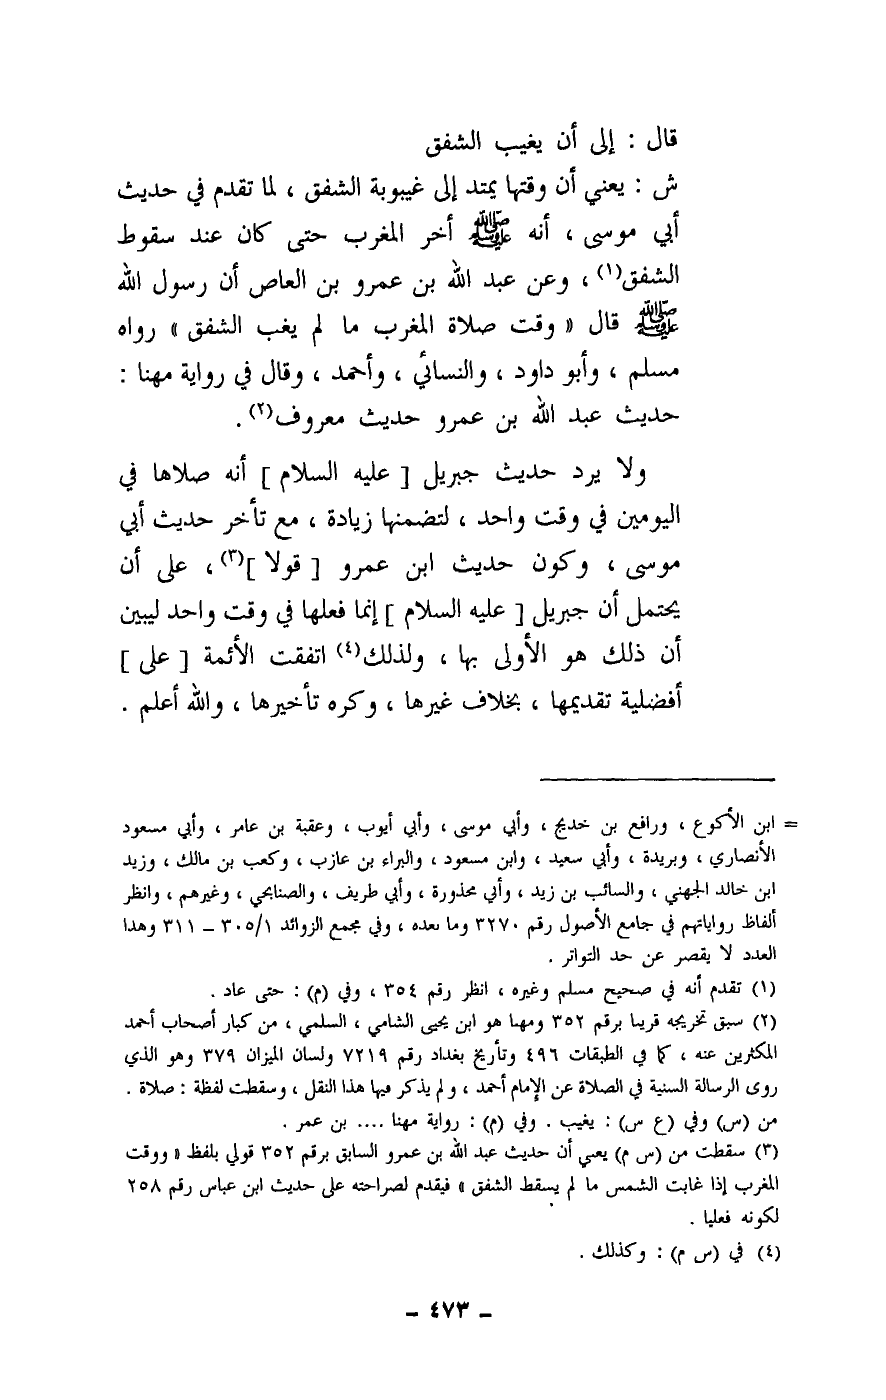 قال : إلى أن يغيب الشفق
ش : يعني أن وقتها يمتد إلى غيبوبة الشفق ، لما تقدم في حديث
أبي موسى ، أنه ﷺ أخر المغرب حتى كان عند سقوط
الشفق(١) ، وعن عبد الله بن عمرو بن العاص أن رسول الله
ﷺ قال « وقت صلاة المغرب ما لم يغب الشفق » رواه
مسلم ، وأبو داود ، والنسائي ، وأحمد ، وقال في رواية مهنا :
حديث عبد الله بن عمرو حديث معروف(٢) .
ولا يرد حديث جبريل [ عليه السلام ] أنه صلاها في
اليومين في وقت واحد ، لتضمنها زيادة ، مع تأخر حديث أبي
موسى ، وكون حديث ابن عمرو [ قولا ](٣) ، على أن
يحتمل أن جبريل [ عليه السلام ] إنما فعلها في وقت واحد ليبين
أن ذلك هو الأولى بها ، ولذلك(٤) اتفقت الأئمة [ على ]
أفضلية تقديمها ، بخلاف غيرها ، وكره تأخيرها ، والله أعلم .
= ابن الأكوع ، ورافع بن خديج ، وأبي موسى ، وأبي أيوب ، وعقبة بن عامر ، وأبي مسعود
الأنصاري ، وبريدة ، وأبي سعيد ، وابن مسعود ، والبراء بن عازب ، وكعب بن مالك ، وزيد
ابن خالد الجهني ، والسائب بن زيد ، وأبي محذورة ، وأبي طريف ، والصنابحي ، وغيرهم ، وانظر
ألفاظ رواياتهم في جامع الأصول رقم ٣٢٧٠ وما بعده ، وفي مجمع الزوائد ٣٠٥/١ – ٣١١ وهذا
العدد لا يقصر عن حد التواتر .
(١) تقدم أنه في صحيح مسلم وغيره ، انظر رقم ٣٥٤ ، وفي (م) : حتى عاد .
(٢) سبق تخريجه قريبا برقم ٣٥٢ ومهنا هو ابن يحيى الشامي ، السلمي ، من كبار أصحاب أحمد
المكثرين عنه ، كما في الطبقات ٤٩٦ وتأريخ بغداد رقم ٧٢١٩ ولسان الميزان ٣٧٩ وهو الذي
روى الرسالة السنية في الصلاة عن الإمام أحمد ، ولم يذكر فيها هذا النقل ، وسقطت لفظة : صلاة .
من (س) وفي (ع س) : يغيب . وفي (م) : رواية مهنا .... بن عمر .
(٣) سقطت من (س م) يعني أن حديث عبد الله بن عمرو السابق برقم ٣٥٢ قولي بلفظ « ووقت
المغرب إذا غابت الشمس ما لم يسقط الشفق » فيقدم لصراحته على حديث ابن عباس رقم ٢٥٨
لكونه فعليا .
(٤) في (س م) : وكذلك .
– ٤٧٣ –